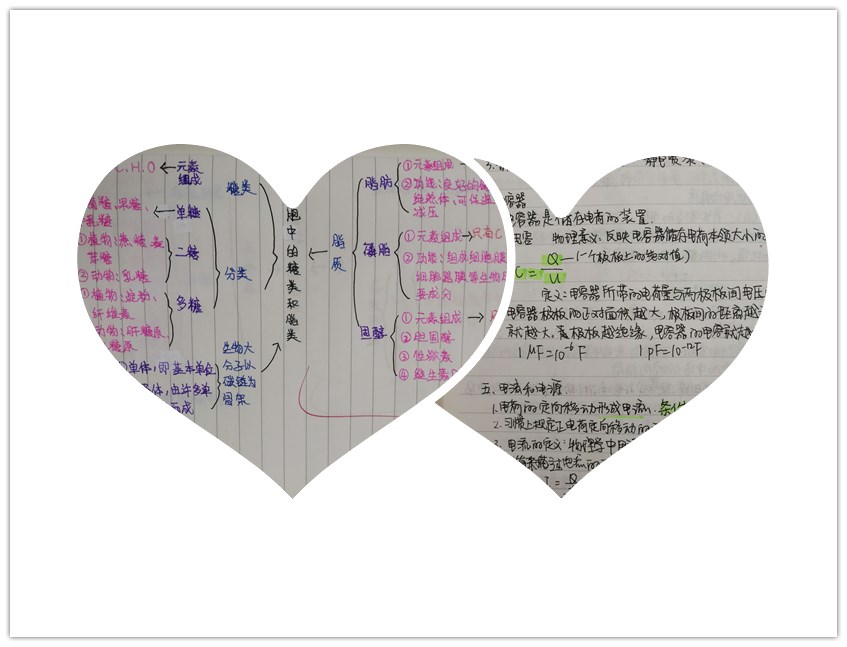 C.H.O ← 元素组成
糖类
单糖
果糖、
二糖
①植物：蔗糖、麦芽糖
②动物：乳糖
分类
多糖
①植物：淀粉、
纤维素
动物：肝糖原
糖原
单体，即基本单位
体，由许多单
而成
生物大
分子以
碳链为
骨架
胞中的糖类和脂类
脂质
脂肪
①元素组成
②功能：良好的
绝热体，可
减压
磷脂
①元素组成→只有C
②功能：组成细胞膜
细胞器膜等生物
要成分
固醇
①元素组成→
②胆固醇
③性激素
④维生素
电容器是储存电荷的装置.
电容 物理意义：反映电容器储存电荷本领大小的
C = Q/U —(一个极板上的绝对值)
定义：电容器所带的电荷量与两极板间电压
电容器极板的正对面积越大，极板间的距离越
就越大，离极板越绝缘，电容器的电容就越
1μF=10⁻⁶F 1pF=10⁻¹²F
五、电流和电源
1.电荷的定向移动形成电流. 条件
2.习惯上规定正电荷定向移动的
3.电流的定义：物理学中用
I = Q